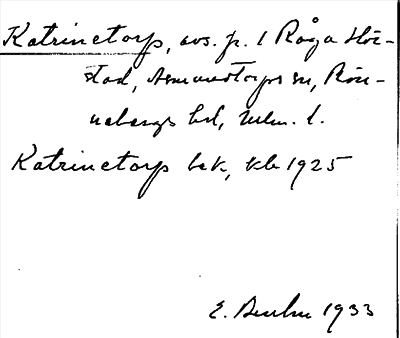 Katrinetorp, avs. fr. 1 Råga Hör-
stad, Asmundtorps sn, Rön-
nebergs hd, Malm. l.
Katrinetorp bek, kb 1925
E. 1933